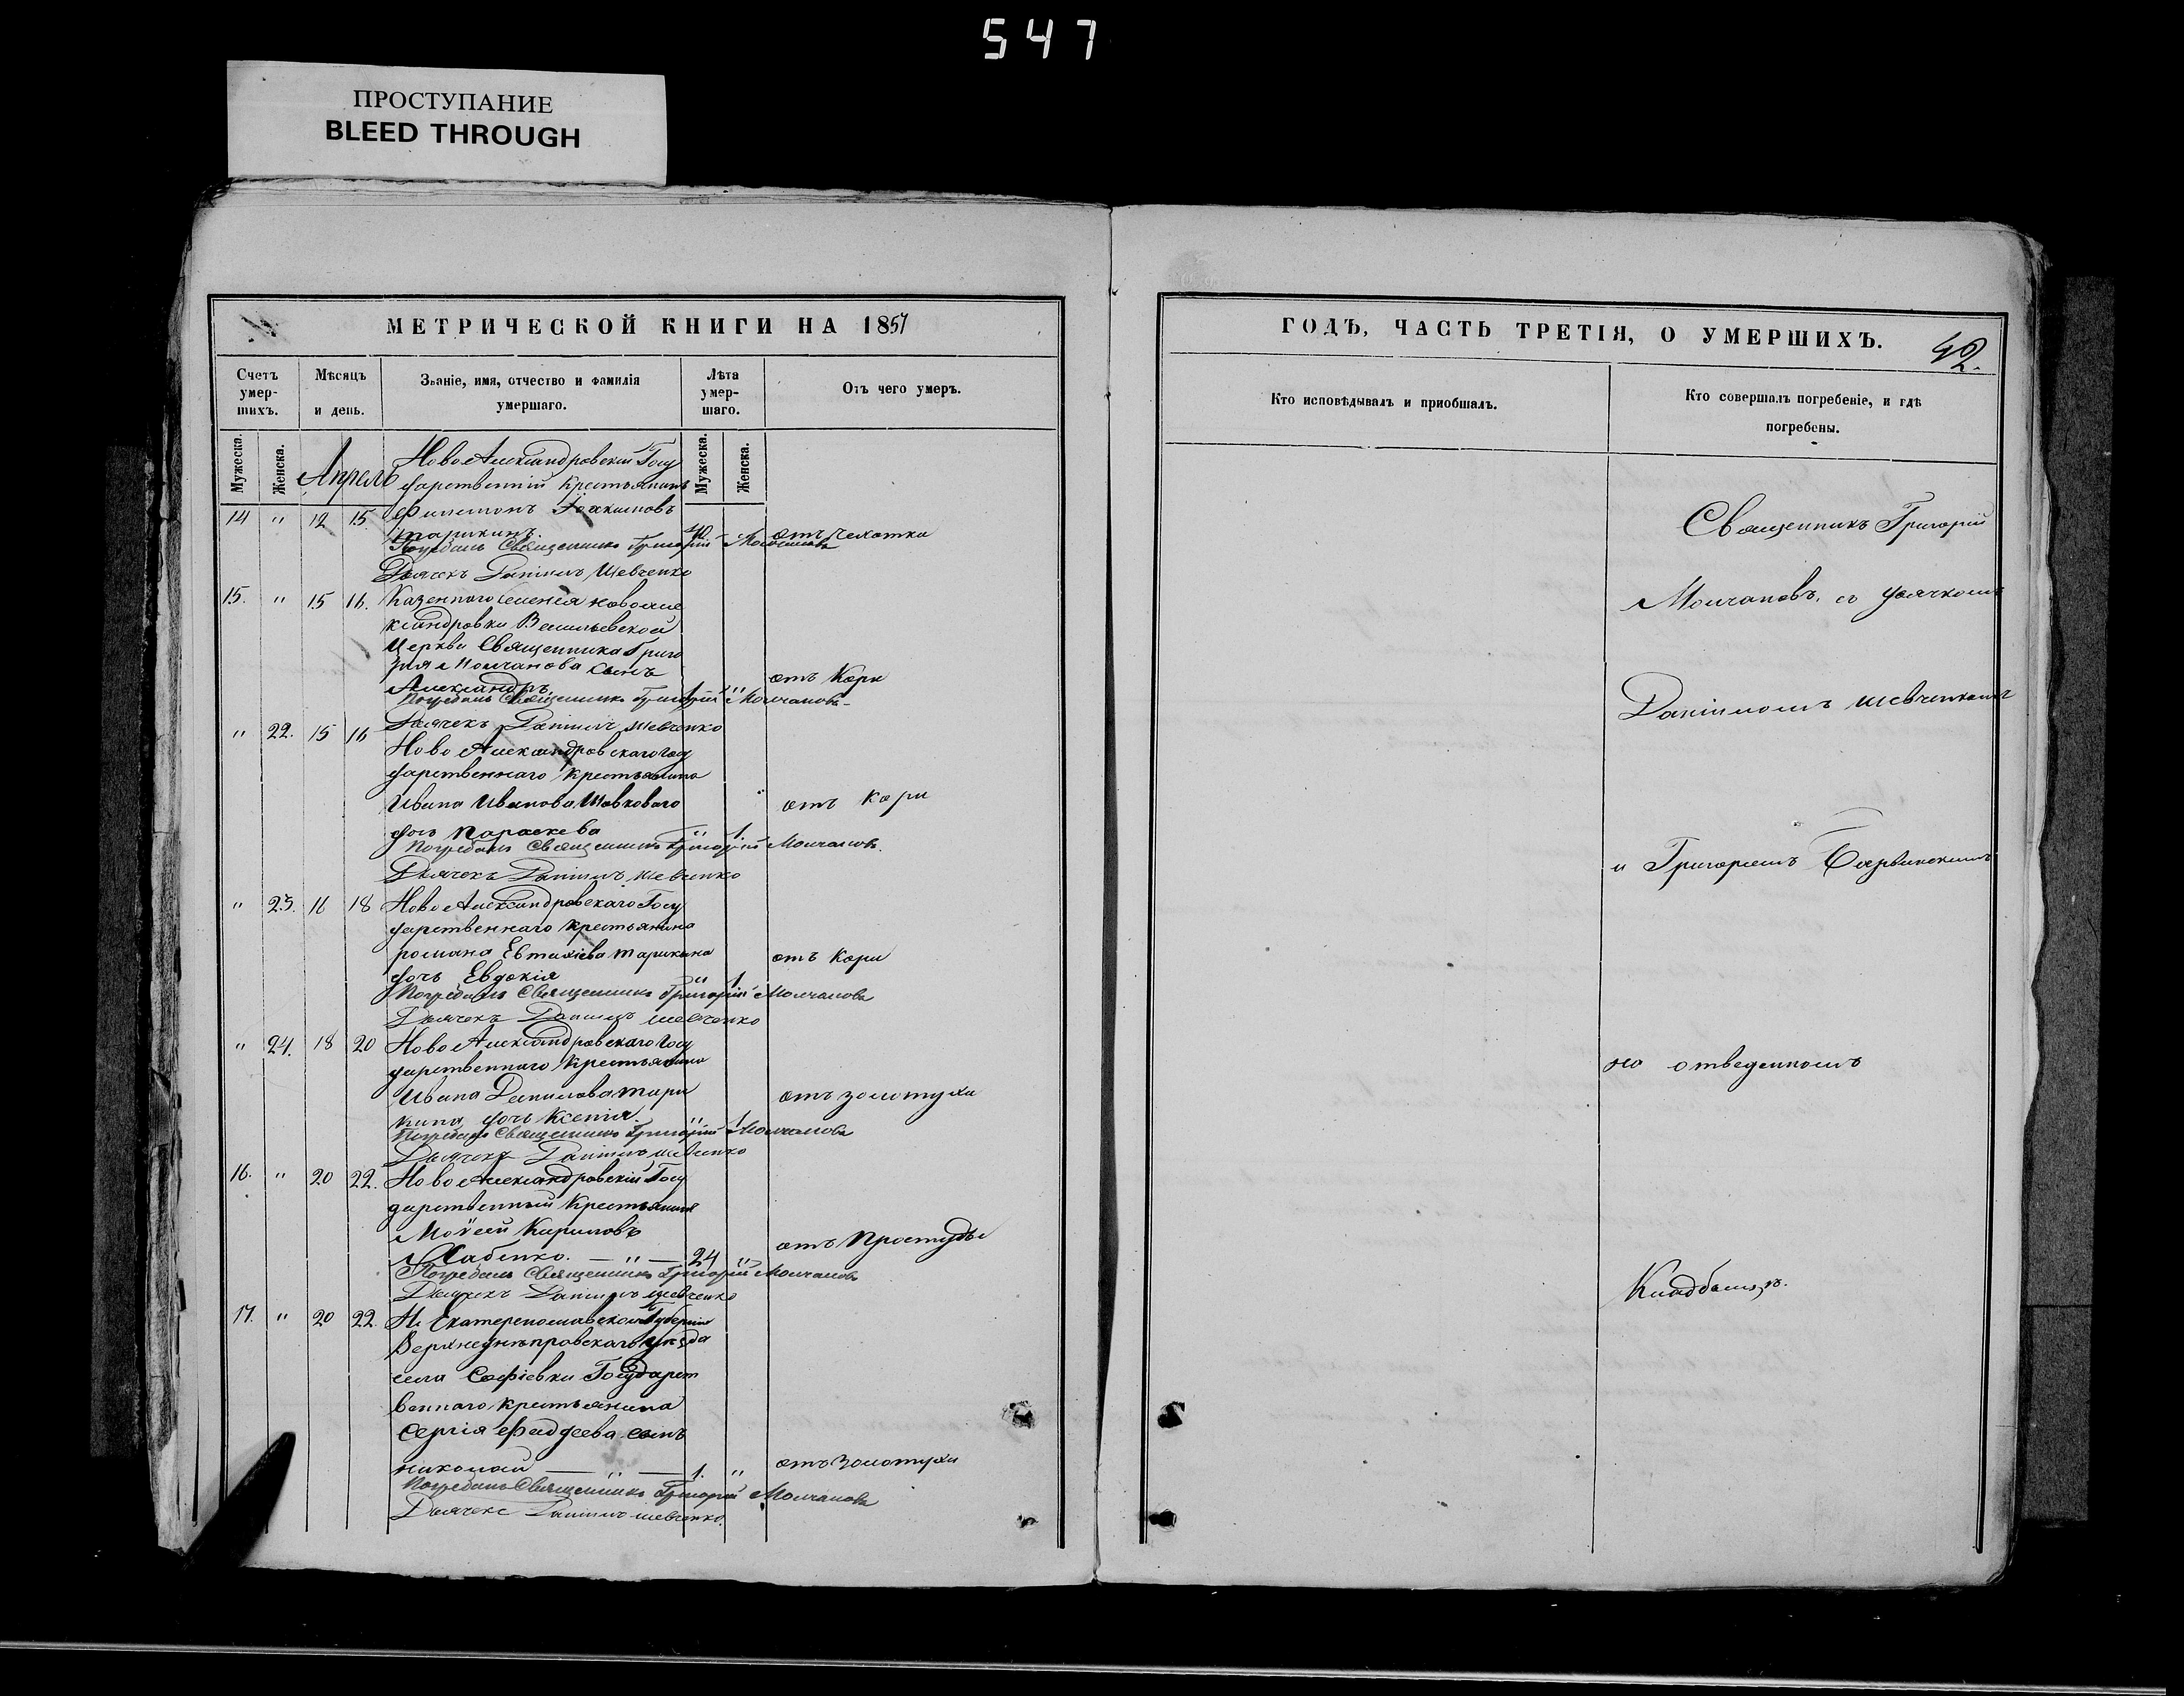 547
ПРОСТУПАНИЕ
BLEED THROUGH
МЕТРИЧЕСКОЙ КНИГИ НА 1851
Счетъ умер-шихъ.
Мѣсяцъ и день.
Званіе, имя, отчество и фамилія умершаго.
Лѣта умер-шаго.
Отъ чего умеръ.
Мужеска.
Женска.
Мужеска.
Женска.
Апрель
Ново Александровскій Госу
дарственній крестьянинъ
14 " 12 15 Филимонъ Іоакимовъ
Тарикинъ. 40 отъ Чехотки
Погребалъ Священникъ Григорій Молчановъ
Дьячекъ Даніилъ Шевченко
15. " 15 16. Казеннаго селенія Новоале
ксандровки Васильевской
Церкви Священника Григо
рія Молчанова сынъ
Александръ 1 " отъ Кори
Погребалъ Священникъ Григорій Молчановъ
Дьячекъ Даніилъ Шевченко
" 22. 15 16 Ново Александровскаго Госу
дарственнаго крестьянина
Ивана Иванова Шовковаго
дочь Параскева " 1. отъ Кори
Погребалъ Священникъ Григорій Молчановъ
Дьячекъ Даніилъ Шевченко
" 23. 16 18 Ново Александровскаго Госу
дарственнаго крестьянина
романа Евтихіева Тарикина
дочь Евдокія " 1 отъ Кори
Погребалъ Священникъ Григорій Молчановъ
Дьячекъ Даніилъ Шевченко
" 24. 18 20 Ново Александровскаго Госу
дарственнаго крестьянина
Ивана Данилова Тари
кина дочь Ксенія. " 1 отъ золотухи
Погребалъ Священникъ Григорій Молчановъ
Дьячекъ Даніилъ Шевченко
16. " 20 22. Ново Александровскій Госу
дарственный Крестьянинъ
Моѵсей Кириловъ
Хабенко. — " — 24 " отъ Простуды
Погребалъ Священникъ Григорій Молчановъ
Дьячекъ Даніилъ Шевченко
17. " 20 22. Екатеринославской Губерніи
Верхнеднѣпровскаго уѣзда
села Софіевки Государст
веннаго крестьянина
Сергія Фадеева сынъ
николай — " — 1. " отъ Золотухи
Погребалъ Священникъ Григорій Молчановъ
Дьячекъ Даніилъ Шевченко.
ГОДЪ, ЧАСТЬ ТРЕТІЯ, О УМЕРШИХЪ.
42.
Кто исповѣдывалъ и приобщалъ.
Кто совершалъ погребеніе, и гдѣ погребены.
Священникъ Григорій
Молчановъ. съ дьячкомъ
Даніиломъ Шевченкомъ
и Григоріемъ
на отведенномъ
Кладбищѣ.